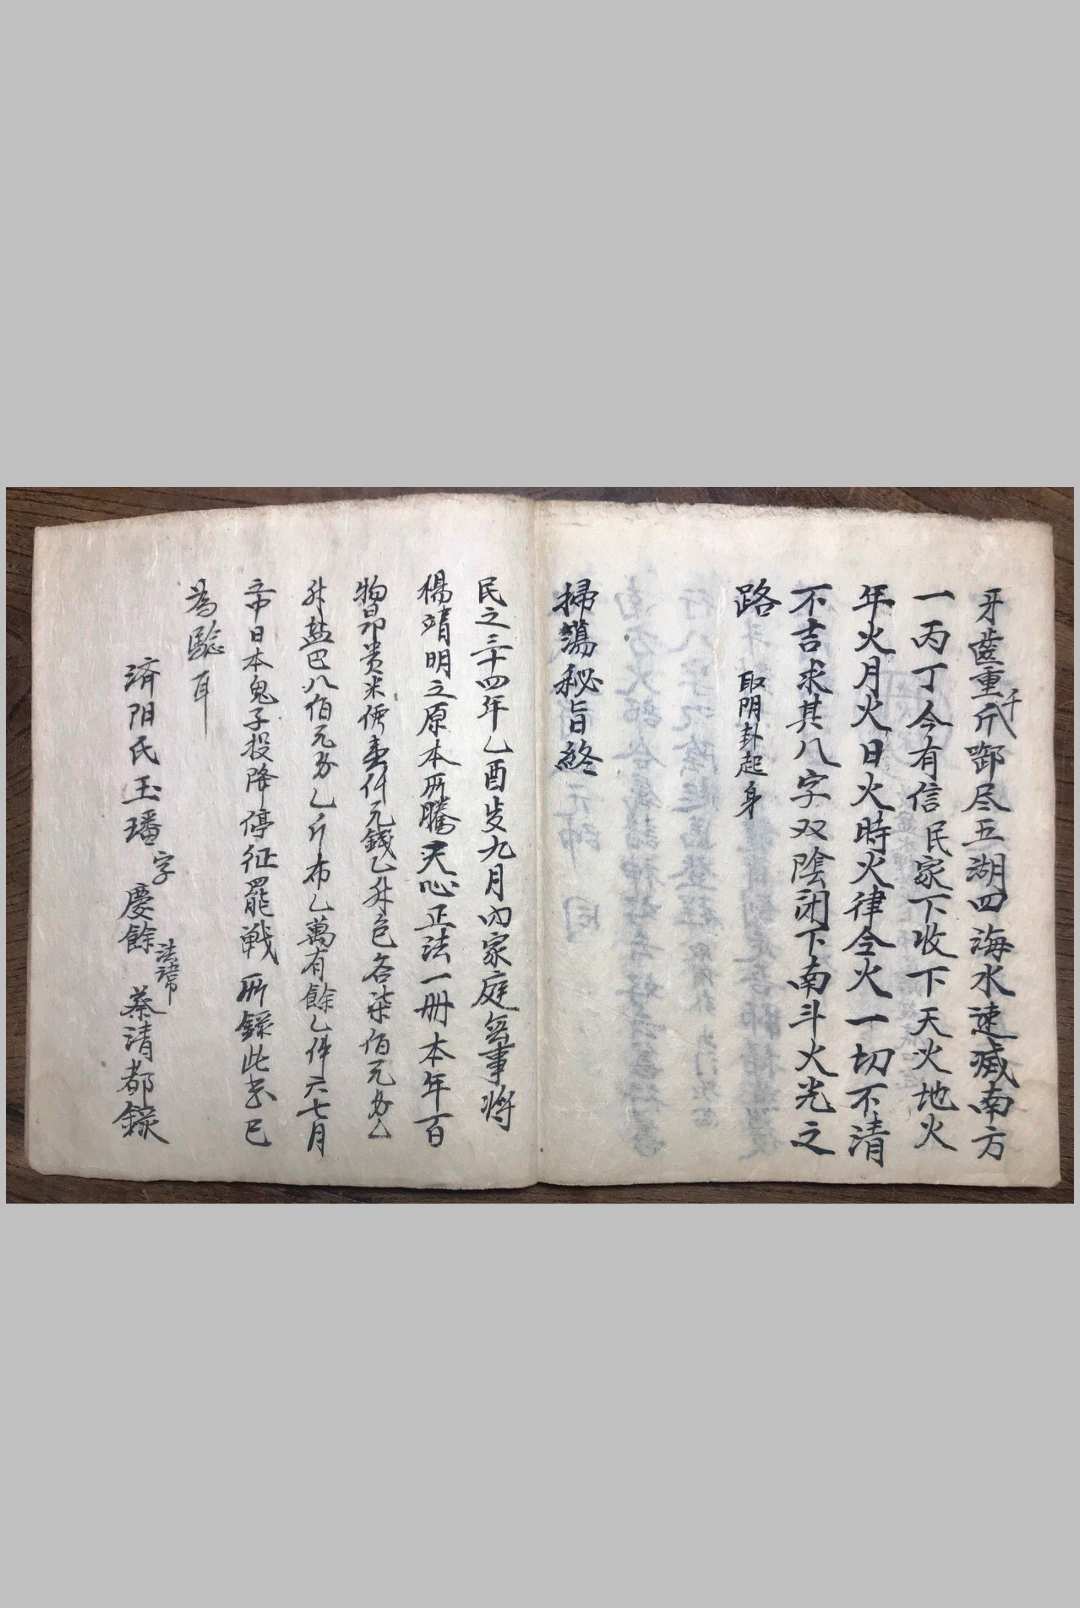 牙齒重千斤啣尽五湖四海水速滅南方
一丙丁今有信民家下收下天火地火
年火月火日火時火律令火一切不清
不吉求其八字双陰闭下南斗火光之
路 取阴卦起身
掃蕩秘旨終
民之三十四年乙酉歲九月内家庭無事將
楊靖明之原本所騰天心正法一册本年百
物昂贵米價壹仟元錢乙升色各柒佰元另乙
升盐巴八佰元另乙斤布乙萬有餘乙件六七月
日本鬼子投降停征罷戦所錄此書已
為騐耳
済阳氏玉璠字慶餘法諱蔡清都錄